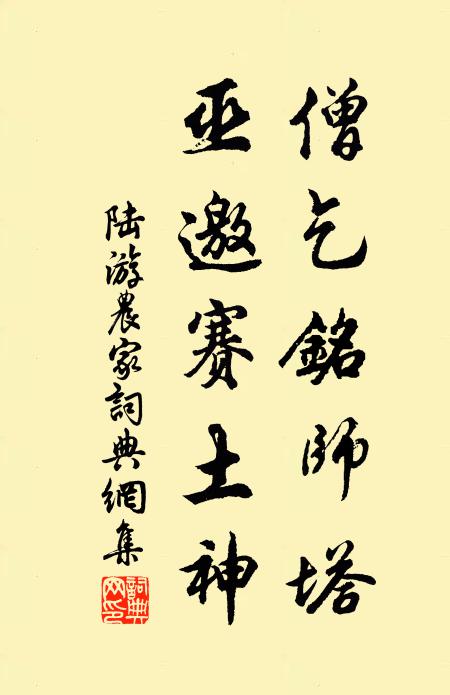 僧乞銘師塔
巫邀賽土神
陆游農家詞典網集
詞典網印